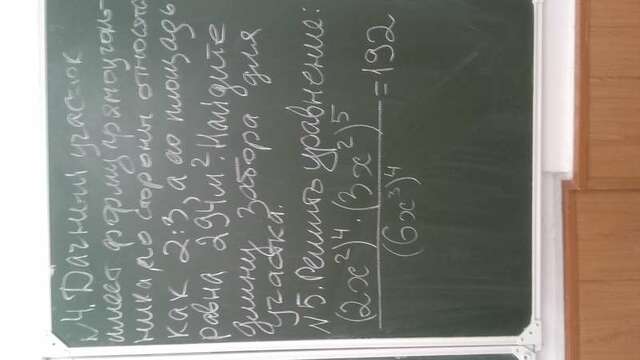 №4. Дачный участок
имеет форму прямоуголь-
ника, его стороны относятся
как 2:3, а его площадь
равна 294 м². Найдите
длину забора для
участка.
№5. Решить уравнение:
(2x²)⁴·(3x²)⁵
(6x³)⁴ = 192